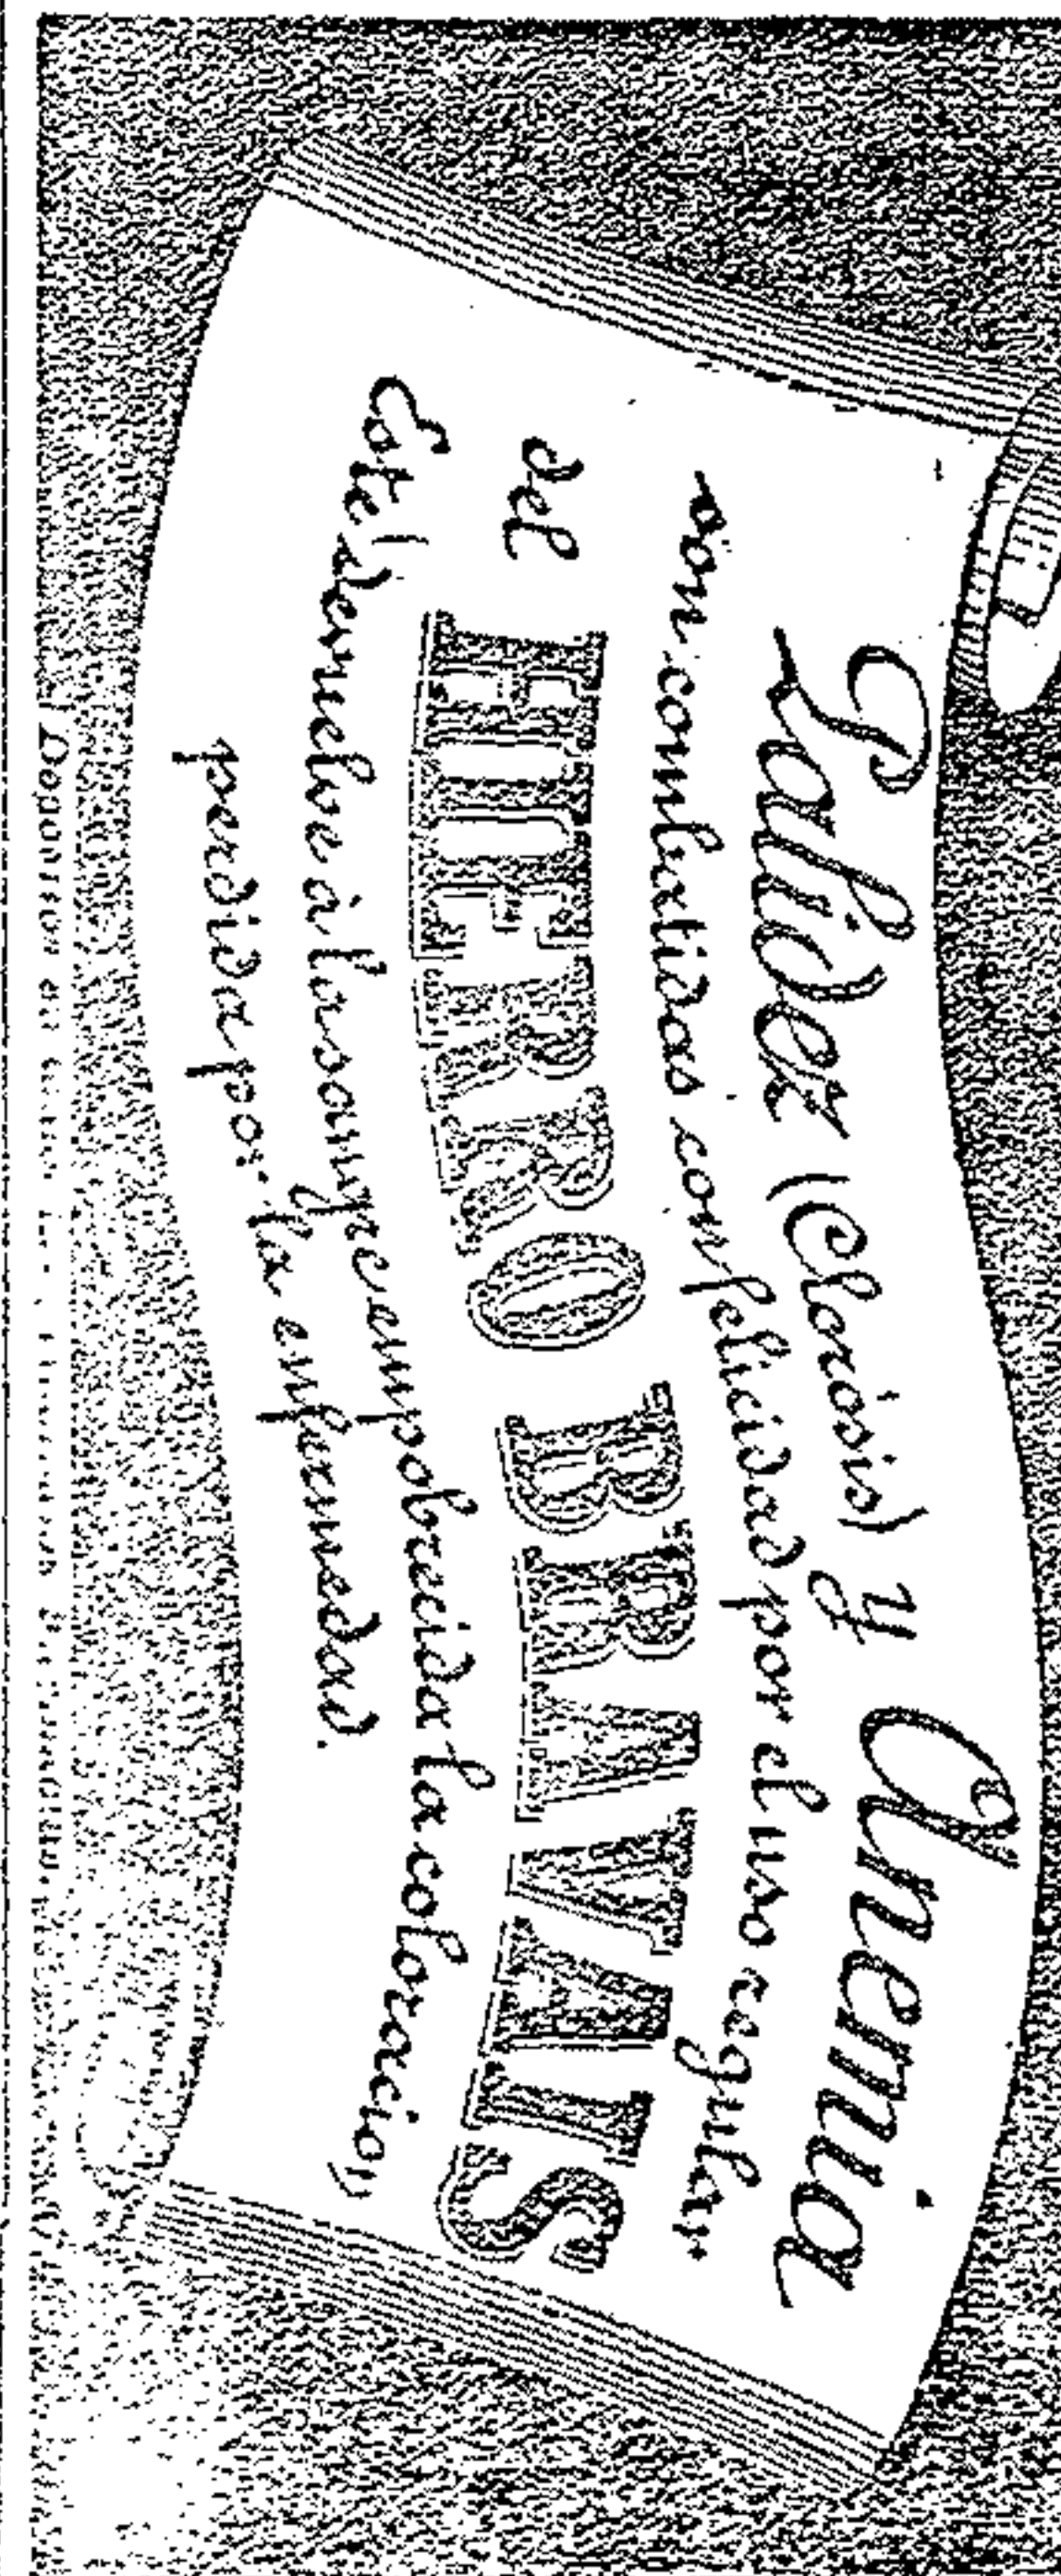 Palidez (Clorósis) y Anemia
son combatidas con felicidad por el uso regular
del HIERRO BRAVAIS
Este devuelve á la sangre empobrecida la coloracion
perdida por la enfermedad.